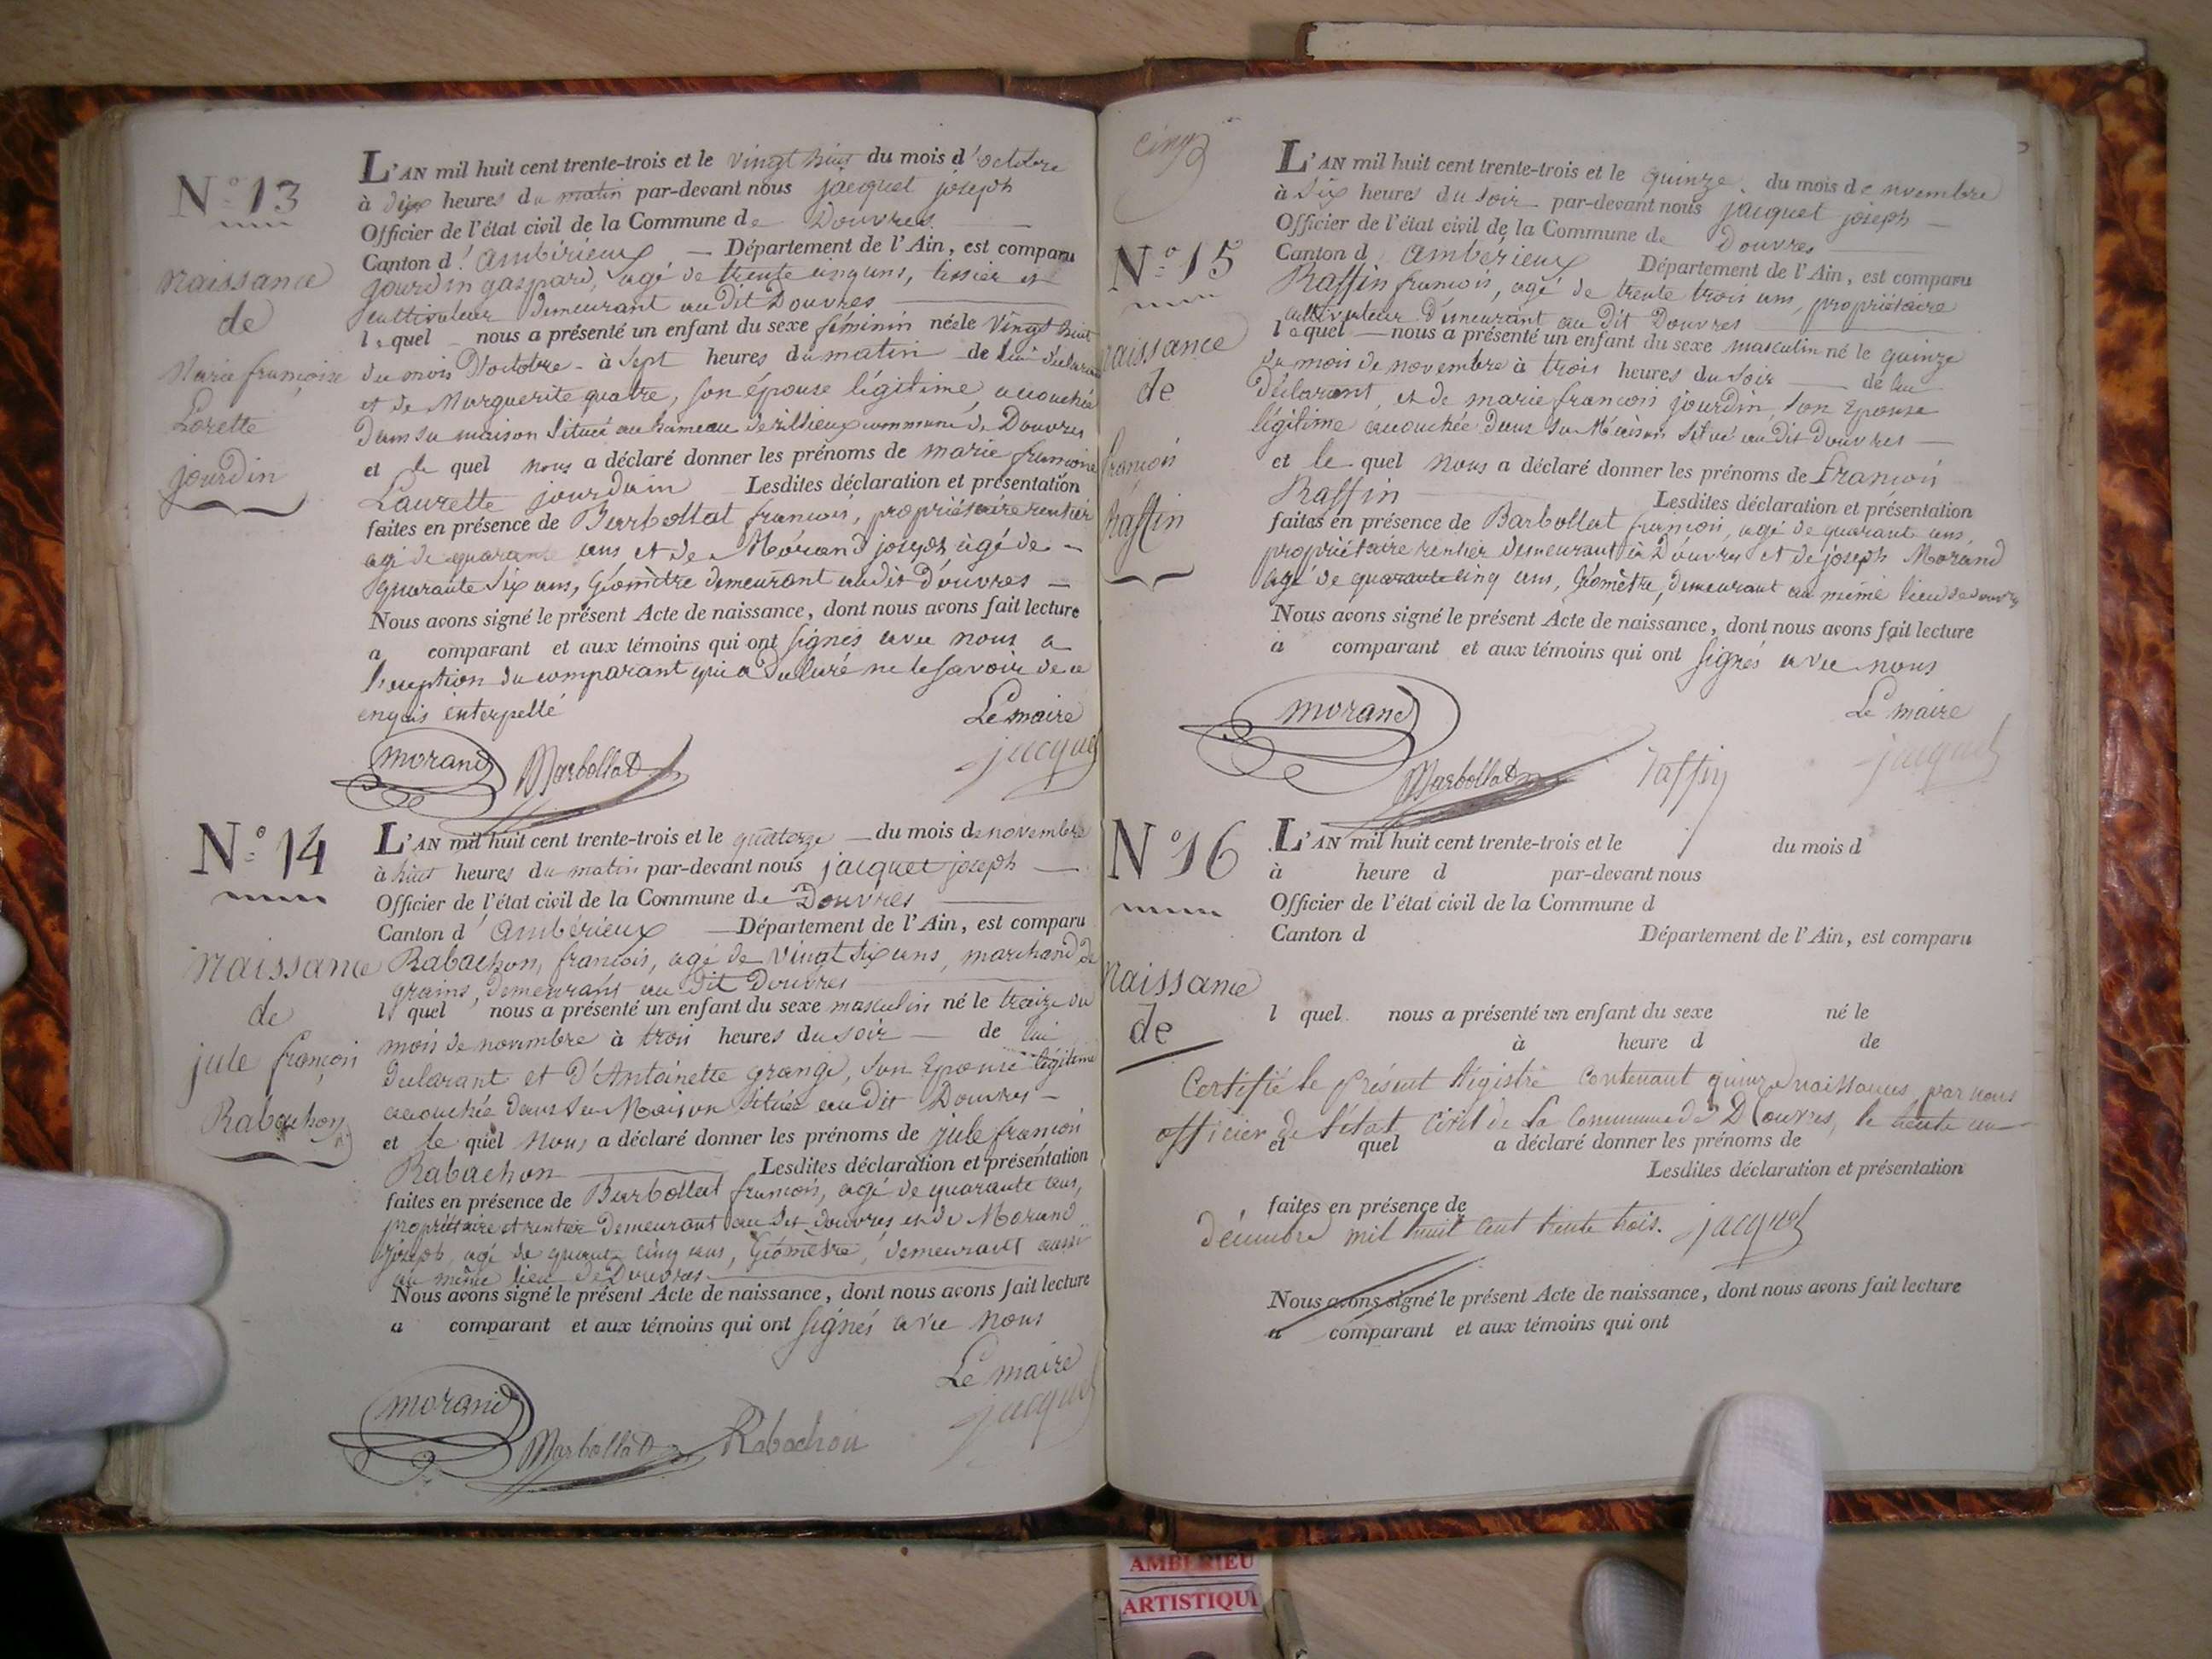 N° 13
naissance
de
Marie françoise
Lorette
jourdin
L'AN mil huit cent trente-trois et le vingt huit du mois d'octobre
à dix heures du matin par-devant nous jacquet joseph
Officier de l'état civil de la Commune de Douvres
Canton d'ambérieux — Département de l'Ain, est comparu
jourdin gaspard, agé de trente cinq ans, tissier et
cultivateur demeurant au dit Douvres
lequel nous a présenté un enfant du sexe féminin née le vingt huit
du mois d'octobre - à sept heures du matin de lui
et de Marguerite quatre, son épouse légitime, accouchée
dans sa maison située au hameau de rillieux commune de Douvres
et le quel nous a déclaré donner les prénoms de marie françoise
Laurette jourdain Lesdites déclaration et présentation
faites en présence de Barbollat francois, propriétaire rentier
agé de quarante ans et de Morand joseph àgé de -
quarante six ans, Géomètre demeurant au dit douvres -
Nous avons signé le présent Acte de naissance, dont nous avons fait lecture
a comparant et aux témoins qui ont signés avec nous a
du comparant qui a déclaré ne le savoir de ce
enquis interpellé
Le maire
morand Barbollat jacquet
N° 14
naissance
de
jule françois
Rabachon
L'AN mil huit cent trente-trois et le quatorze — du mois de novembre
à huit heures du matin par-devant nous jacquet joseph —
Officier de l'état civil de la Commune de Douvres
Canton d'ambérieux — Département de l'Ain, est comparu
Rabachon, francois, agé de vingt six ans, marchand de
grains, demeurant au dit Douvres
l quel nous a présenté un enfant du sexe masculin né le treize du
mois de novembre à trois heures du soir — de lui
déclarant et d'Antoinette grange, son Epouse légitime
accouchée dans sa Maison située au dit Douvres -
et le quel nous a déclaré donner les prénoms de jule francois
Rabachon — Lesdites déclaration et présentation
faites en présence de Barbollat francois, agé de quarante ans,
propriétaire et rentier demeurant au dit douvres et de Morand
joseph, agé de quarante cinq ans, Géomètre, demeurant aussi
au même lieu de Douvres
Nous avons signé le présent Acte de naissance, dont nous avons fait lecture
a comparant et aux témoins qui ont signés avec nous
Le maire
morand Barbollat Rabachon jacquet
cinq
N° 15
naissance
de
françois
Raffin
L'AN mil huit cent trente-trois et le quinze du mois de novembre
à six heures du soir par-devant nous jacquet joseph —
Officier de l'état civil de la Commune de Douvres
Canton d ambérieux Département de l'Ain, est comparu
Raffin francois, agé de trente trois ans, propriétaire
cultivateur demeurant au dit Douvres
lequel — nous a présenté un enfant du sexe masculin né le quinze
du mois de novembre à trois heures du soir — de lui
déclarant, et de marie francois jourdin, son Epouse
légitime accouchée dans sa Maison situé au dit douvres —
et le quel nous a déclaré donner les prénoms de francois
Raffin Lesdites déclaration et présentation
faites en présence de Barbollat francois, agé de quarante ans,
propriétaire rentier demeurant à Douvres et de joseph Morand
agé de quarante cinq ans, Géomètre, demeurant au même lieu de douvres
Nous avons signé le présent Acte de naissance, dont nous avons fait lecture
a comparant et aux témoins qui ont signés avec nous
Le maire
morand Barbollat raffin jacquet
N° 16
naissance
de
L'AN mil huit cent trente-trois et le du mois d
à heure d par-devant nous
Officier de l'état civil de la Commune d
Canton d Département de l'Ain, est comparu
l quel nous a présenté un enfant du sexe né le
à heure d de
Certifié le présent Régistre contenant quinze naissances par nous
officier de l'état civil de la Commune de Douvres, le trente un
et quel a déclaré donner les prénoms de
Lesdites déclaration et présentation
faites en présence de
décembre mil huit cent trente trois. jacquet
Nous avons signé le présent Acte de naissance, dont nous avons fait lecture
a comparant et aux témoins qui ont
AMBERIEU
ARTISTIQU